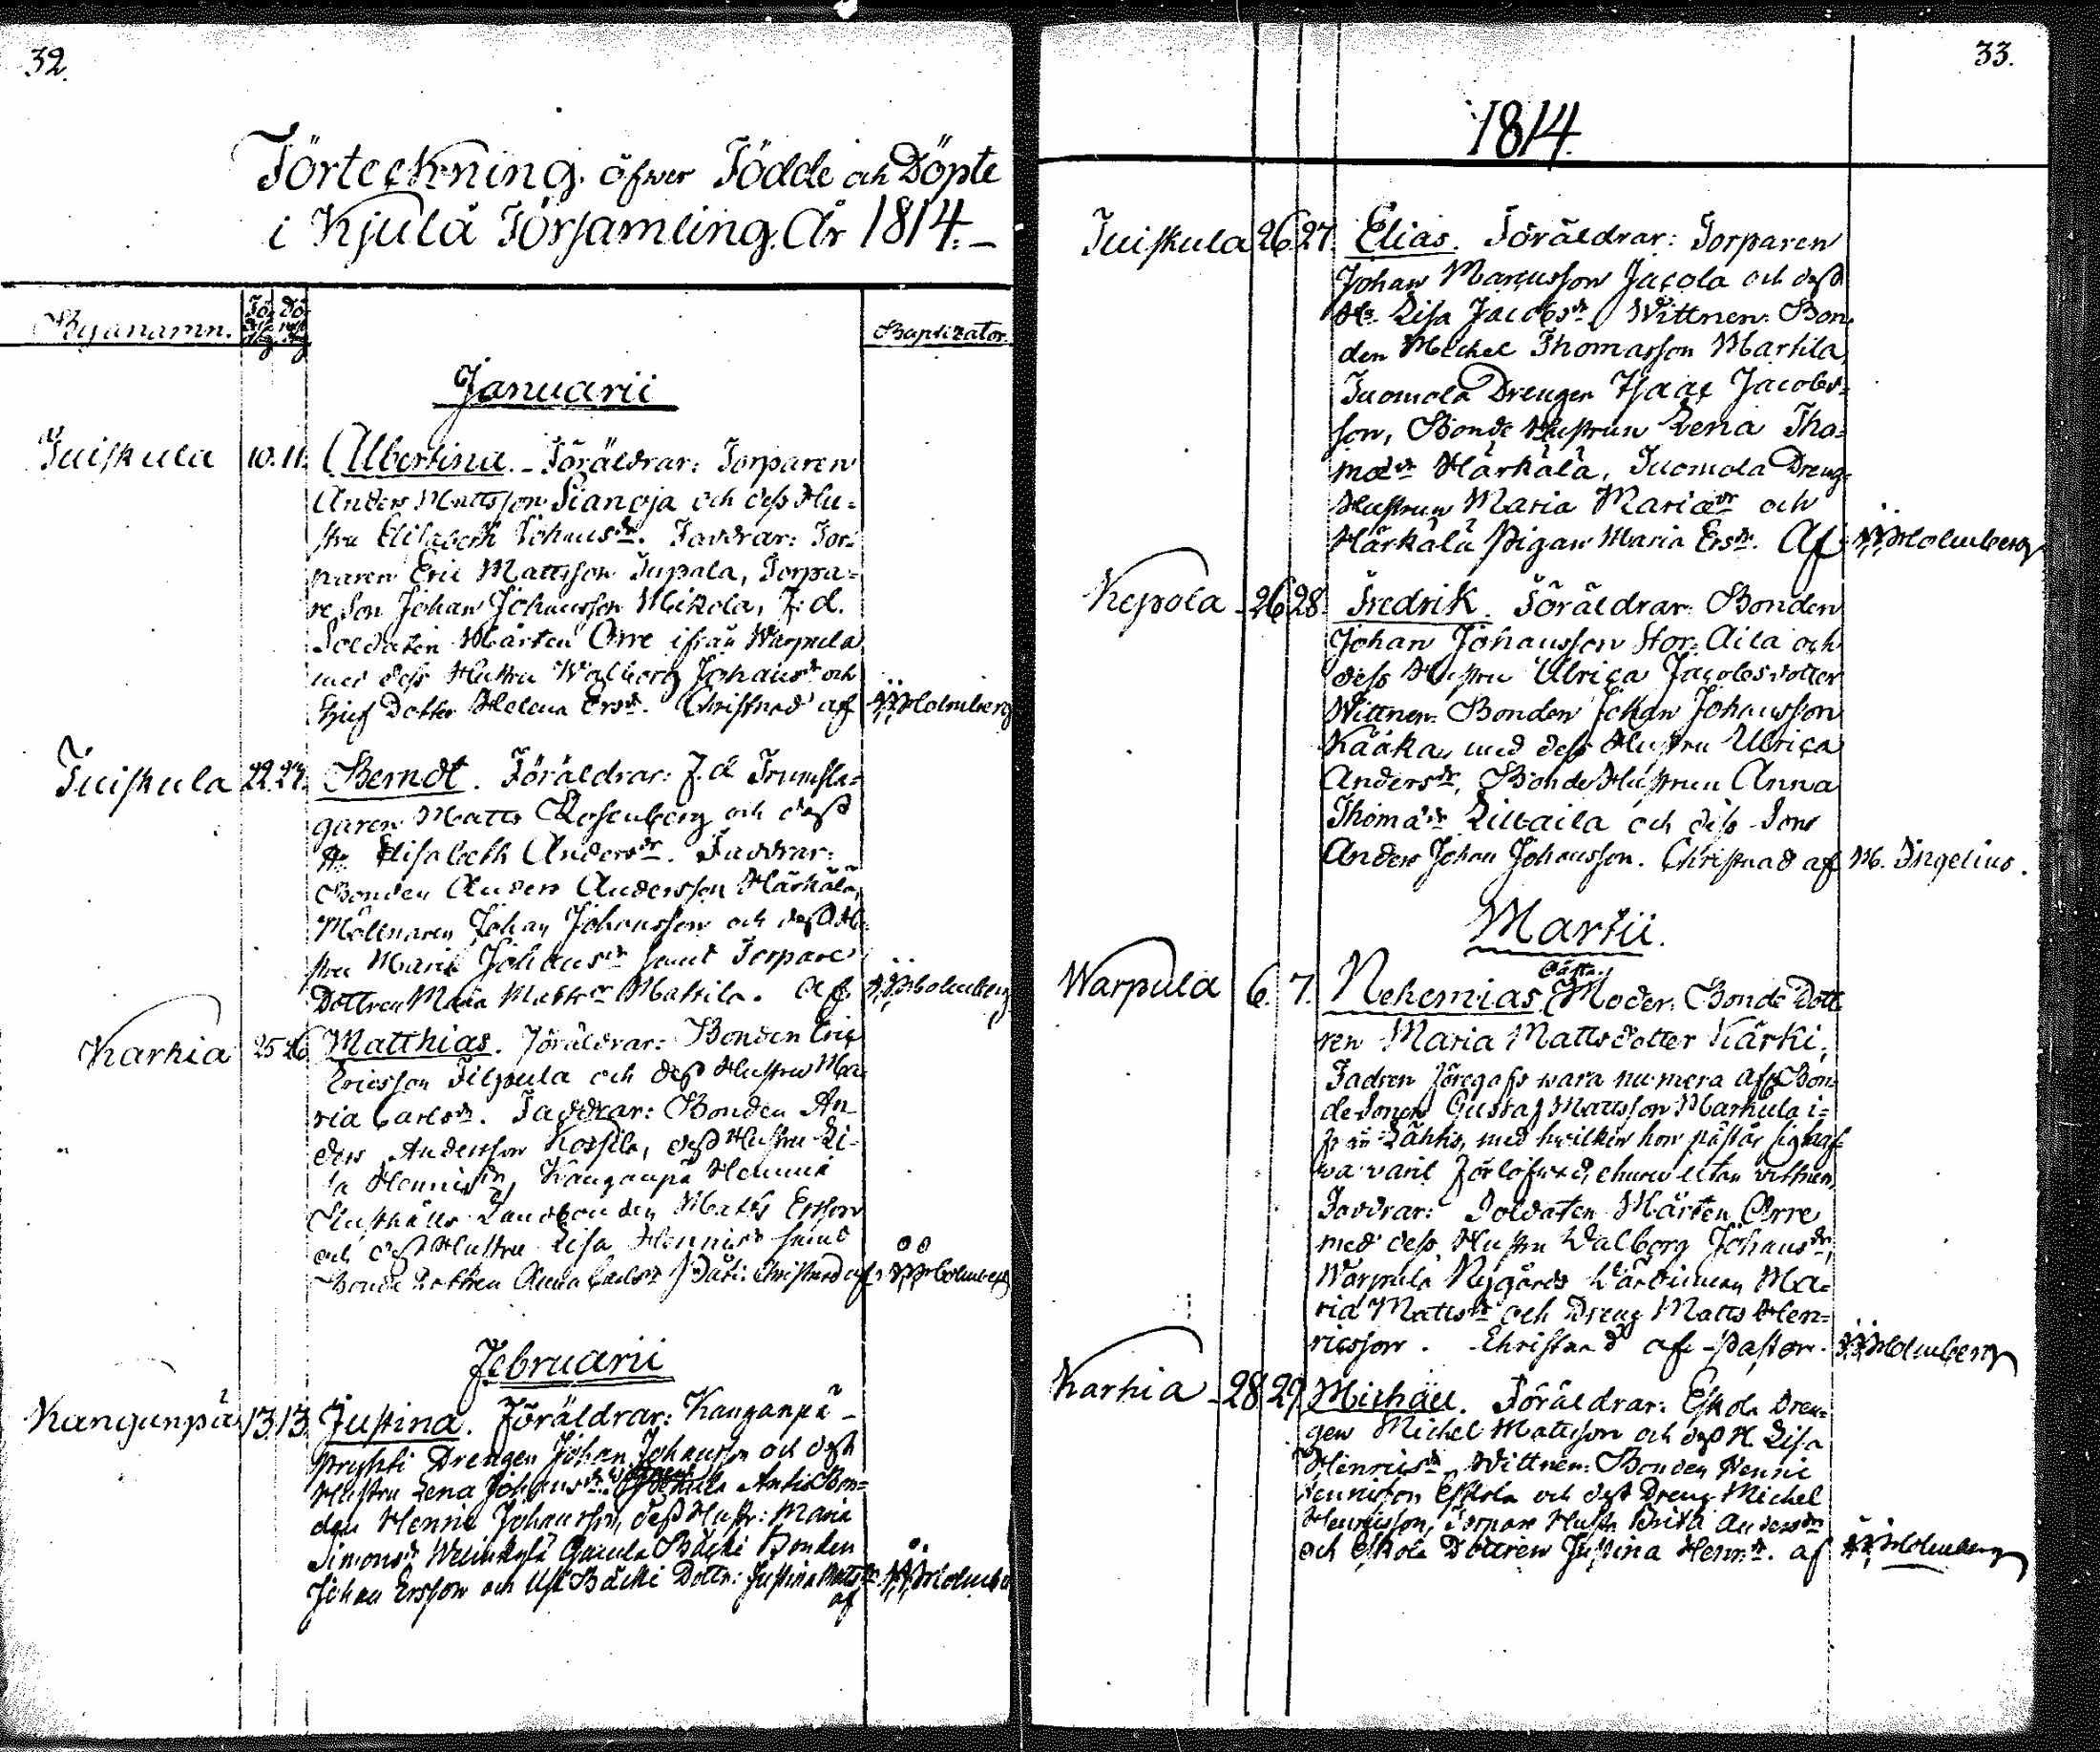 32.
Förteckning öfwer Födde och Döpte
i Kjulå Församling År 1814.
Byanamn.
Baptizator.
Januarii
Tuiskula 10. 11. Albertina. Föräldrar: Torparen
Anders Mattsson Pianoja och dess Hu-
stru Elisabeth Johansdr. Faddrar: Tor-
paren Eric Mattsson Tupala, Torpa-
re Son Johan Johansson Mikola, F. d.
Soldaten Mårten Orre ifrån Warpula
med dess Hustru Walborg Johansdr och
Dotter Helena Ersdr. Christnad af Holmberg
Tuiskula 22. 24. Berndt. Föräldrar: F. d. Trumsla-
garen Matts Rosenberg och dess
H. Elisabeth Andersdr. Faddrar:
Bonden Anders Andersson Härkälä,
Möllnaren Johan Johansson och dess Hu-
stru Maria Johansdr samt Torpare
Dottren Maria Mattsdr Mattila. Af Holmberg
Karhia 25 26 Matthias. Föräldrar: Bonden Eric
Ericsson Filppula och dess Hustru Ma-
ria Carlsdr. Faddrar: Bonden An-
ders Andersson Kossila, dess Hustru Li-
sa Henricsdr, Kånganpä
Landbonden Matts Ersson
och dess Hustru Lisa Henricsdr samt
Bonde Dottren Anna Carlsdr Christnad af Holmberg
Februarii
Kånganpä 13 13 Justina. Föräldrar: Kånganpä
Drengen Johan Johansson och dess
Hustru Lena Johansdr. Antis Bon-
den Henric Johansson, dess Hustr: Maria
Simonsdr Bäcki Bonden
Johan Ersson och Bäcki Dottr: Justina Mattsdr Holmberg
af
33.
1814.
Tuiskula 26 27. Elias. Föräldrar: Torparen
Johan Marcusson Jacola och dess
H. Lisa Jacobsdr Wittnen: Bon-
den Michel Thomasson Martila,
Tuomola Drengen Isaac Jacobs-
son, Bonde Hustrun Lena Tho-
madr Härkälä, Tuomola Dreng
Hustrun Maria Mariadr och
Härkälä Pigan Maria Ersdr. Af Holmberg
Kepola 26 28 Fredrik. Föräldrar: Bonden
Johan Johansson Stor-Aila och
dess Hustru Ulrica Jacobsdotter
Wittnen: Bonden Johan Johansson
Kääka, med dess Hustru Ulrica
Andersdr, Bonde Hustrun Anna
Thomadr Lillaila och dess Son
Anders Johan Johansson. Christnad af M. Ingelius.
Martii.
Warpula 6. 7. Nehemias. Moder: Bonde Dott-
ren Maria Mattsdotter Kärki,
Fadren föregafs wara numera afl. Bon-
de Sonen Gustaf Mattsson Markula i-
från Lähtis, med hwilken hon påstår sig haf-
wa varit förlofwad, ehuru utan vittnen.
Faddrar: Soldaten Mårten Orre
med dess Hustru Walborg Johansdr,
Warpula Nygårds Wärdinnan Ma-
ria Mattsdr och Dreng Matts Hen-
ricsson. Christnad af Pastor. Holmberg
Karhia 28 29 Michaël. Föräldrar: Eskola Dren-
gen Michel Mattsson och dess H. Lisa
Henricsdr Wittnen: Bonden Henric
Henricsson Eskola och dess Dreng Michel
Henricsson, Torpare Hustr. Brita Andersdr
och Eskola Dottren Justina Henricsdr. af Holmberg